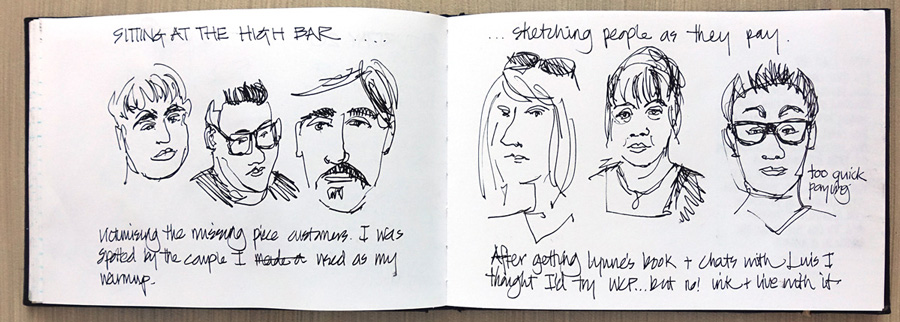 SITTING AT THE HIGH BAR ....
... sketching people as they pay.
too quick
paying
victimising the missing piece customers. I was
spotted by the couple I made a used as my
warmup.
After getting Lynne's book + chats with Luis I
thought I'd try WCP... but no! ink + live with it